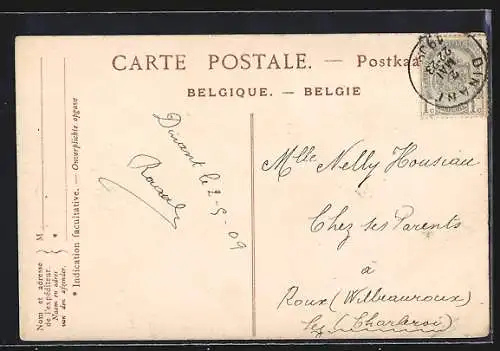 CARTE POSTALE. — Postkaa
BELGIQUE. — BELGIE
DINANT
Dinant le 2-5-09
Mlle Nelly Housiau
Chez ses Parents
à
Roux (Wilbeauroux)
lez (Charleroi)
Nom et adresse
de l'expéditeur.
Naam en adres
van den afzender.
M
*
* Indication facultative. — Onverplichte opgave